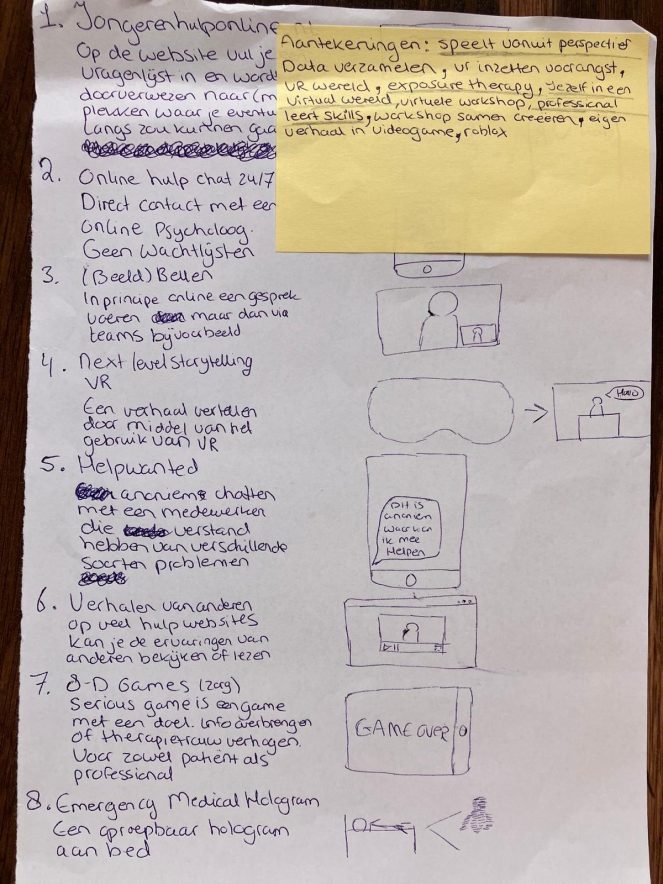 1. Jongerenhulponline
Op de website vul je
vragenlijst in en word
doorverwezen naar (m
plekken waar je eventu
Langs zou kunnen gaa
Aantekeningen: speelt vanuit perspectief
Data verzamelen, vr inzetten voor angst,
VR wereld, exposure therapy, jezelf in een
virtual wereld, virtuele workshop, professional
leert skills, workshop samen creeëren, eigen
verhaal in videogame, roblox
2. Online hulp chat 24/7
Direct contact met een
online Psycholoog.
Geen wachtlijsten
3. (Beeld) Bellen
In principe online een gesprek
voeren maar dan via
teams bijvoorbeeld
4. Next level storytelling
VR
Een verhaal vertellen
door middel van het
gebruik van VR
Hallo
5. Helpwanted
anoniem chatten
met een medewerker
die verstand
hebben van verschillende
soorten problemen
Dit is
anoniem
waar kan
ik mee
Helpen
6. Verhalen van anderen
op veel hulp websites
kan je de ervaringen van
anderen bekijken of lezen
7. 8-D Games (zorg)
Serious game is een game
met een doel. Info overbrengen
of therapietrouw verhogen.
Voor zowel patiënt als
professional
GAME OVER
8. Emergency Medical Hologram
Een oproepbaar hologram
aan bed